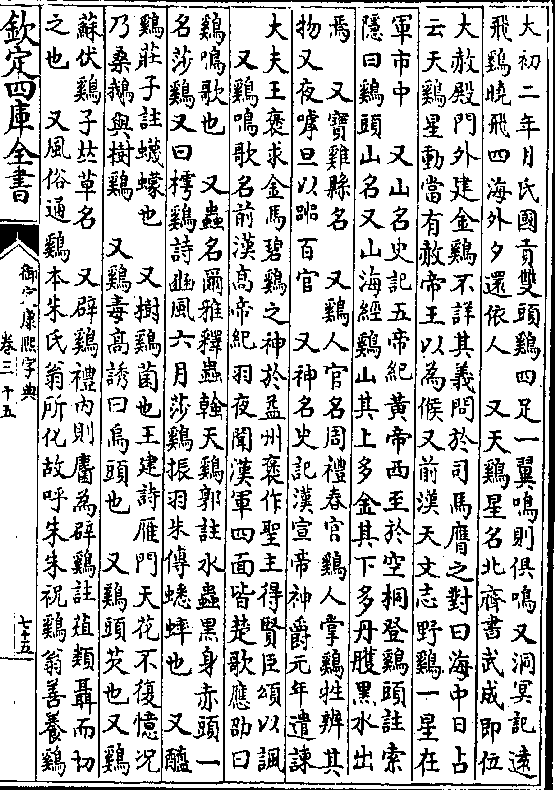 大初二年月氏國貢雙頭鷄四足一翼鳴則俱鳴又洞冥記遠
飛鷄曉飛四海外夕還依人　又天鷄星名北齊書武成即位
大赦殿門外建金鷄不詳其義問於司馬膺之對曰海中日占
云天鷄星動當有赦帝王以為候又前漢天文志野鷄一星在
軍市中　又山名史記五帝紀黃帝西至於空桐登鷄頭註索
隱曰鷄頭山名又山海經鷄山其上多金其下多丹雘黑水出
焉　又寶雞縣名　又鷄人官名周禮春官鷄人掌鷄牲辨其
物又夜嘑旦以嘂百官　又神名史記漢宣帝神爵元年遣諫
大夫王褒求金馬碧鷄之神於益州褒作聖主得賢臣頌以諷
又鷄鳴歌名前漢高帝紀羽夜聞漢軍四面皆楚歌應劭曰
鷄鳴歌也　又蟲名爾雅釋蟲螒天鷄郭註水蟲黑身赤頭一
名莎鷄又曰樗鷄詩豳風六月莎鷄振羽朱傳蟋蟀也　又醯
鷄莊子註蠛蠓也　又樹鷄菌也王建詩雁門天花不復憶況
乃桑鵝與樹鷄　又鷄毒高誘曰烏頭也　又鷄頭芡也又鷄
蘇伏鷄子𠀤草名　又辟鷄禮內則麕為辟鷄註菹類聶而切
之也　又風俗通鷄本朱氏翁所化故呼朱朱祝鷄翁善養鷄
欽定四庫全書
御定康熙字典
卷三十五
七十五